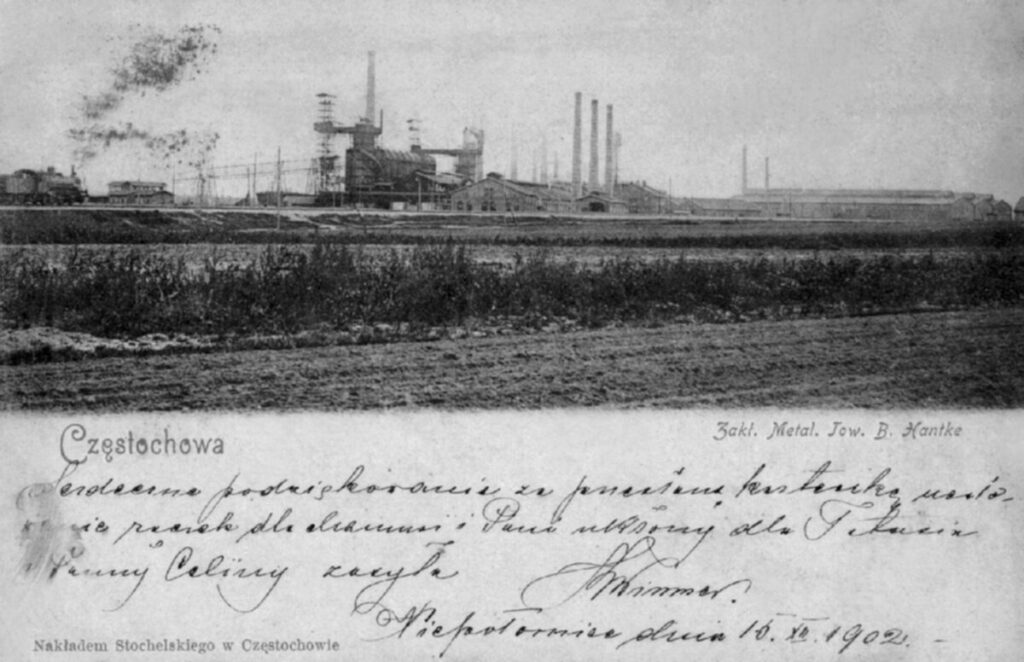 Częstochowa
Zakł. Metal. Tow. B. Hantke
Serdeczne podziękowanie za przesłaną karteczkę, ucało-
nie rączek dla Mamusi i Pani ukłony dla
Panny Celiny zasyła
Niepołomice dnia 15. XII. 1902.
Nakładem Stochelskiego w Częstochowie